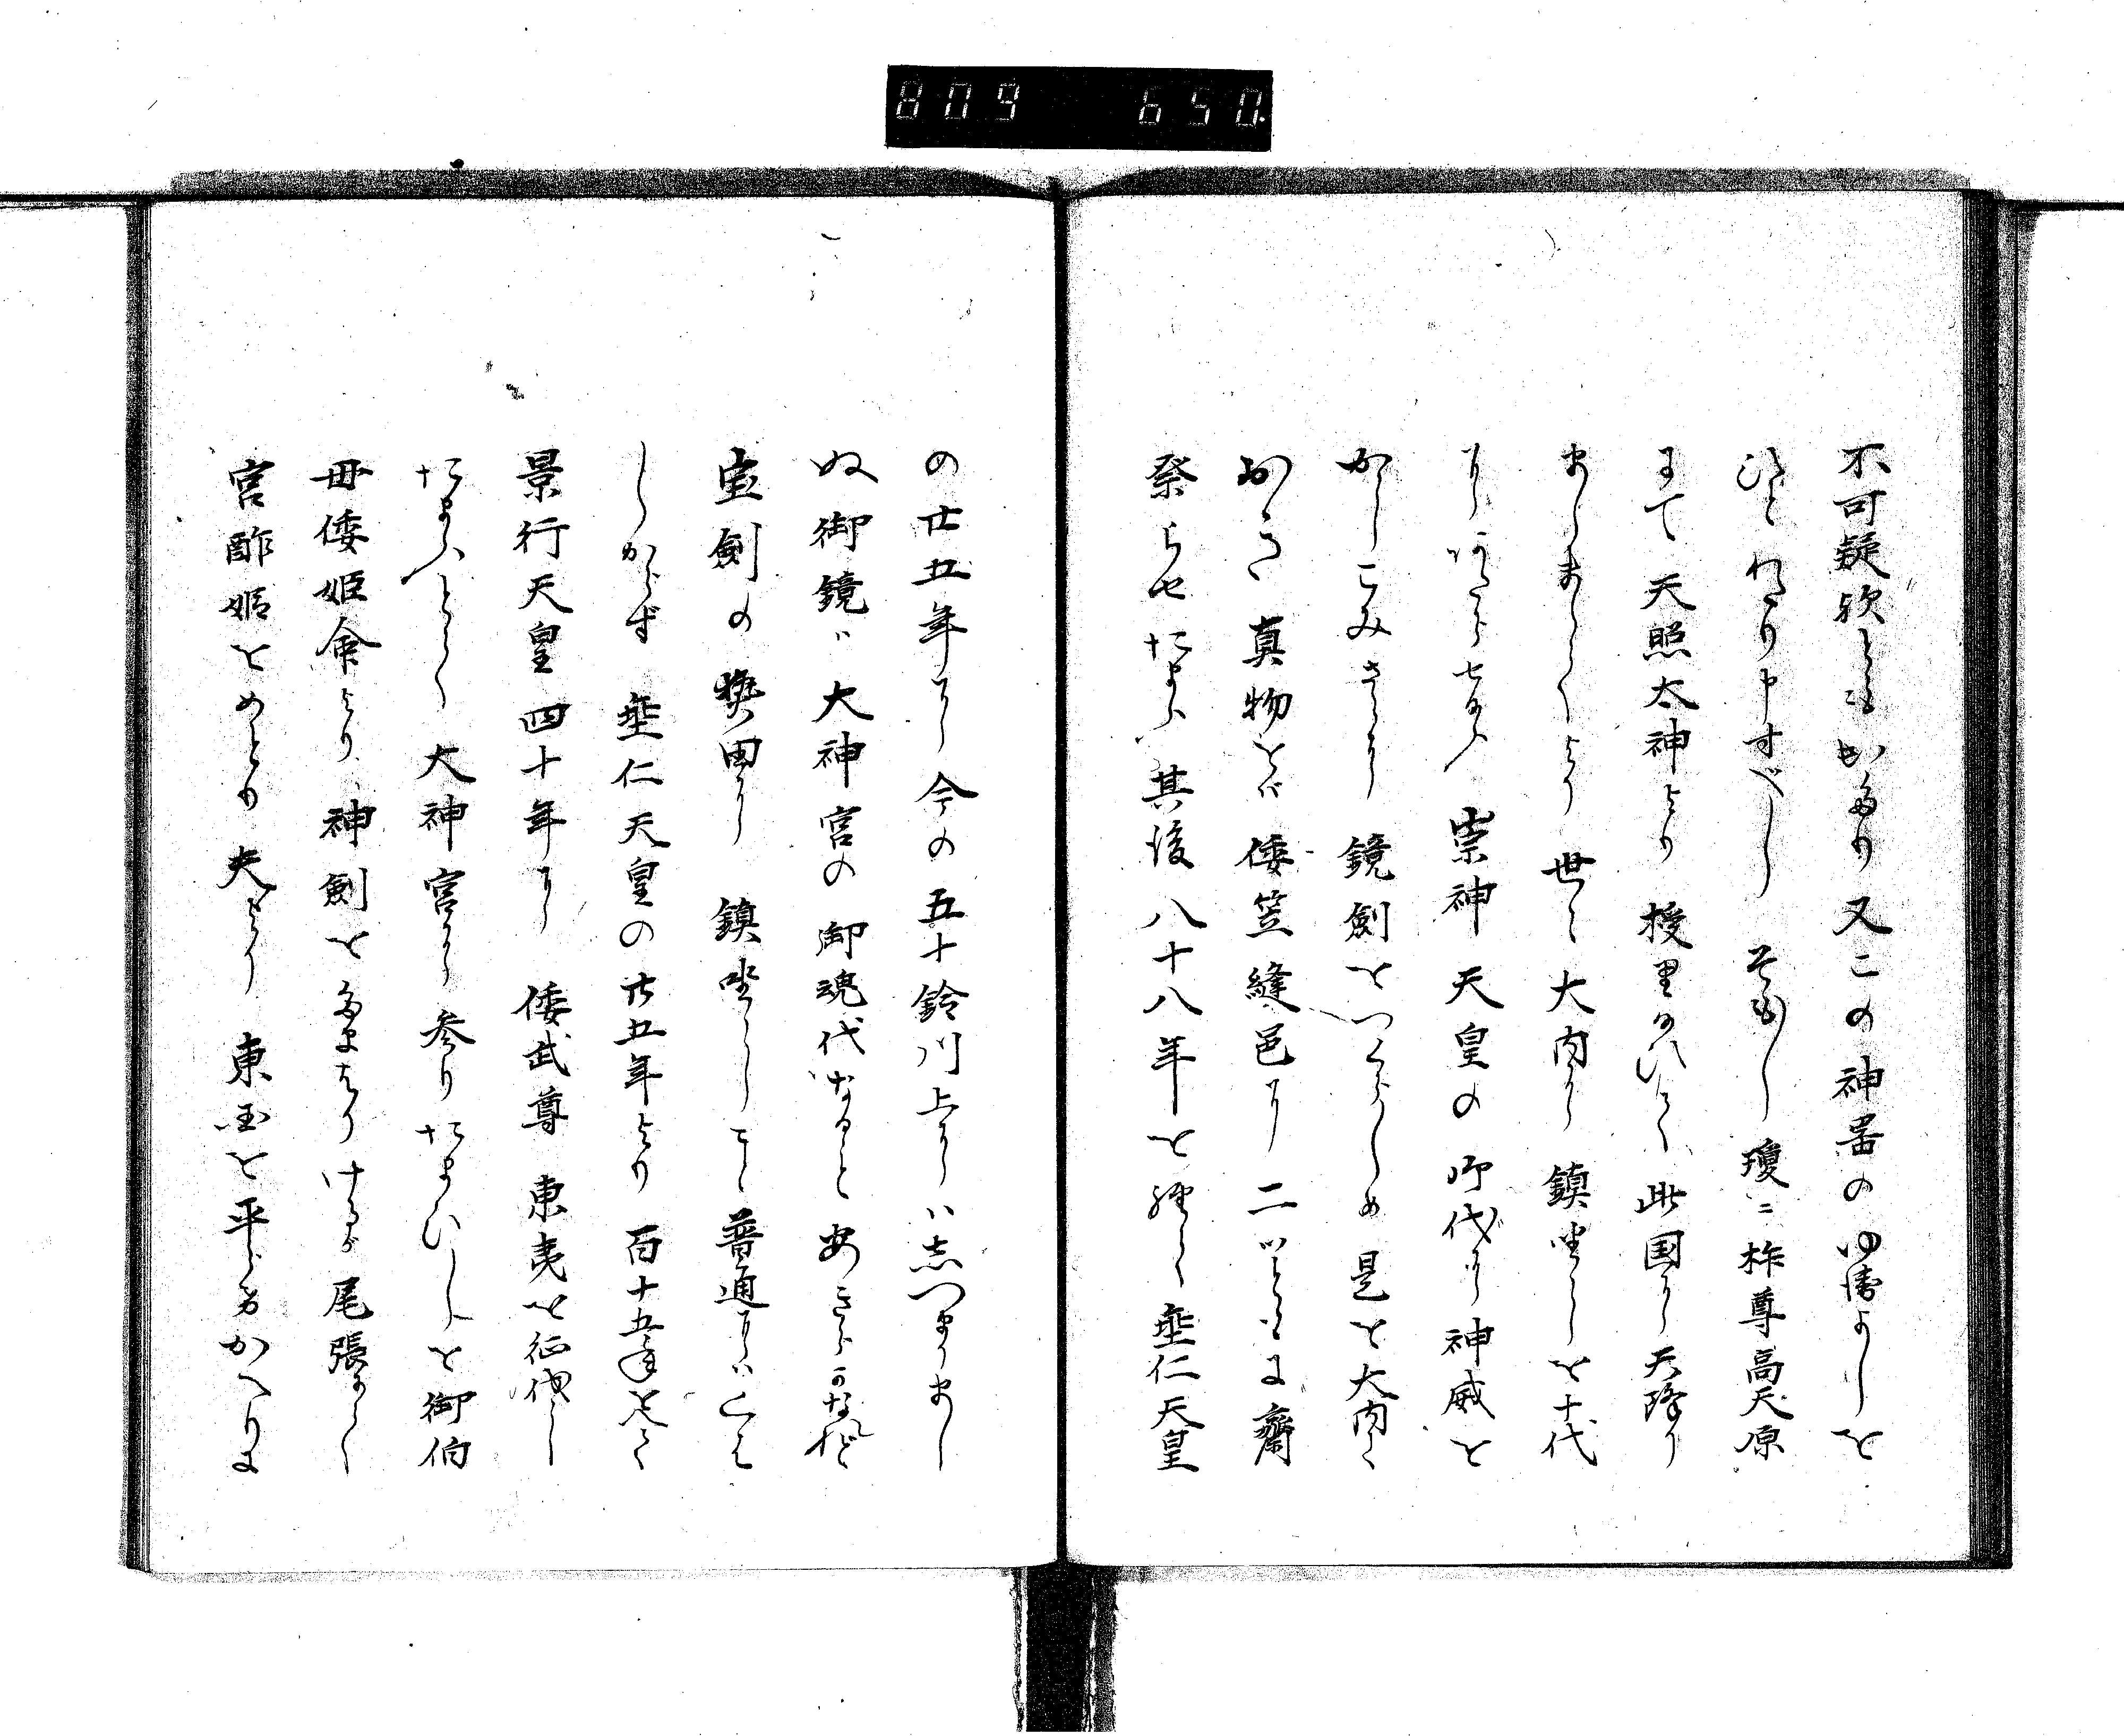 809 650
不可疑欤とぞかたり又この神器のゆゑよしを
ひとわたり申すべし そもそも瓊々杵尊高天原
にて天照太神より授里給ひて此国に天降り
ましましてより世々大内に鎮坐しを十代
にあたらせ給ふ崇神天皇の御代に神威を
かしこみさらに鏡劍をつくらしめ是を大内に
おき真物をば倭笠縫邑に二つともに齋
祭らせたまふ其後八十八年を経て垂仁天皇
の廿五年に今の五十鈴川上にはしつまりまし
ぬ御鏡ハ大神宮の御魂代なることあきらかなれど
宝劍の熱田に鎮坐しこと普通にはくは
しからず垂仁天皇の廿五年より百十五年をへて
景行天皇四十年に倭武尊東夷を征伐し
たまふとて大神宮に参りたまひしを御伯
母倭姫命より神劍をたまはりけるが尾張にて
宮酢姫をめとり夫より東国を平らげかへりに